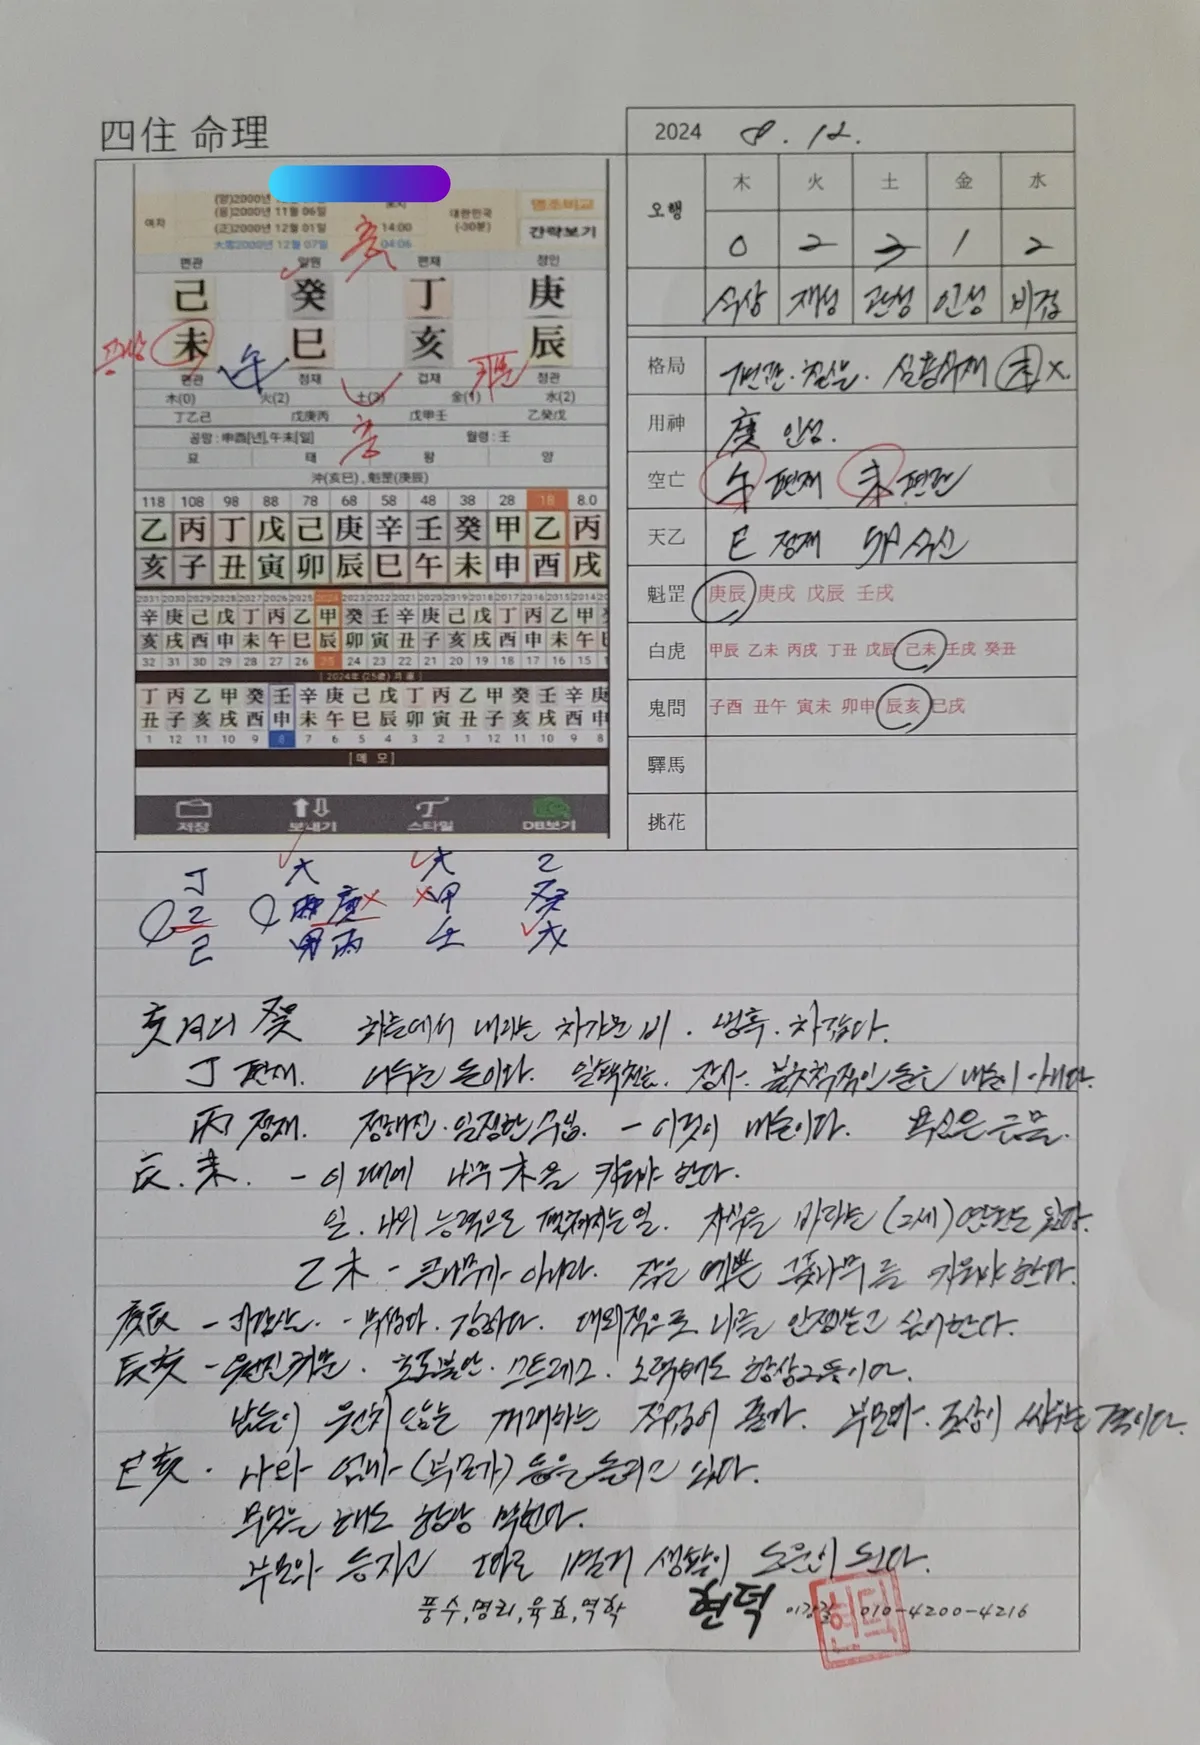 四住 命理
2024 8.12.
오행 木 火 土 金 水
0 2 3 1 2
식상 재성 관성 인성 비겁
格局 편관·칠살
用神 庚 인성.
空亡 午 편재 未 편관
天乙 巳 정재 卯 식신
魁罡 庚辰 庚戌 戊辰 壬戌
白虎 甲辰 乙未 丙戌 丁丑 戊辰 己未 壬戌 癸丑
鬼問 子酉 丑午 寅未 卯申 辰亥 巳戌
驛馬
挑花
(음)2000년 11월 06일
여자 (正)2000년 12월 01일 14:00 대한민국 (-30분)
大雪2000년 12월 07일 04:06
명조비교
간략보기
편관 일원 편재 정인
己 癸 丁 庚
공망 未 午 巳 亥 辰
편관 정재 겁재 정관
木(0) 火(2) 土(3) 金(1) 水(2)
丁乙己 戊庚丙 戊甲壬 乙癸戊
공망 : 申酉[년],午未[일] 월령 : 壬
묘 태 왕 양
沖(亥巳) , 魁罡(庚辰)
118 108 98 88 78 68 58 48 38 28 18 8.0
乙 丙 丁 戊 己 庚 辛 壬 癸 甲 乙 丙
亥 子 丑 寅 卯 辰 巳 午 未 申 酉 戌
2031 2030 2029 2028 2027 2026 2025 2024 2023 2022 2021 2020 2019 2018 2017 2016 2015 2014
辛 庚 己 戊 丁 丙 乙 甲 癸 壬 辛 庚 己 戊 丁 丙 乙 甲
亥 戌 酉 申 未 午 巳 辰 卯 寅 丑 子 亥 戌 酉 申 未 午
32 31 30 29 28 27 26 25 24 23 22 21 20 19 18 17 16 15
[ 2024年 (25歲) 月運 ]
丁 丙 乙 甲 癸 壬 辛 庚 己 戊 丁 丙 乙 甲 癸 壬 辛 庚
丑 子 亥 戌 酉 申 未 午 巳 辰 卯 寅 丑 子 亥 戌 酉 申
1 12 11 10 9 8 7 6 5 4 3 2 1 12 11 10 9 8
[ 메 모 ]
저장 보내기 스타일 DB보기
丁 戊 戊 乙
乙 庚 甲 癸
己 丙 壬 戊
亥月의 癸 하늘에서 내리는 차가운 비. 냉혹. 차갑다.
丁 편재. 장사. 불규칙적인 돈은 내돈이 아니다.
丙 정재. 정해진·일정한 수입. - 이것이 내돈이다. 욕심은 금물.
辰.未. - 이 땅에 나무 木을 키워야 한다.
일. 나의 능력으로 자식을 바라는 (2세)
乙木 - 큰나무가 아니라. 작은 예쁜 꽃나무를 키워야 한다.
庚辰 - 괴강살. - 무섭다. 강하다. 대외적으로 나를 인정받고 싶어한다.
辰亥 - 원진귀문. 초조불안. 스트레스. 노력해도 항상 그돈이다.
남들이 원치 않는 직업이 좋다. 부모와. 조상이 싸우는 격이다.
巳亥. 나와 엄마 (부모가) 등을 돌리고 있다.
무엇을 해도 항상 막힌다.
부모와 등지고 멀리 생활이 도움이 된다.
풍수,명리,육효,역학 현덕 이강길 010-4200-4216
현덕